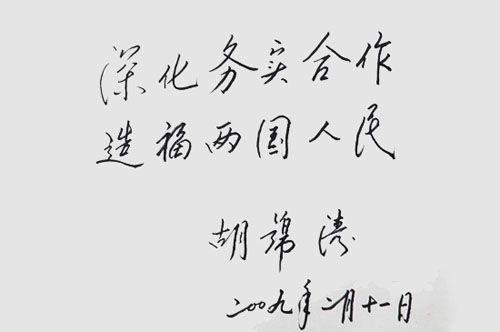 深化务实合作
造福两国人民
胡锦涛
二〇〇九年二月十一日